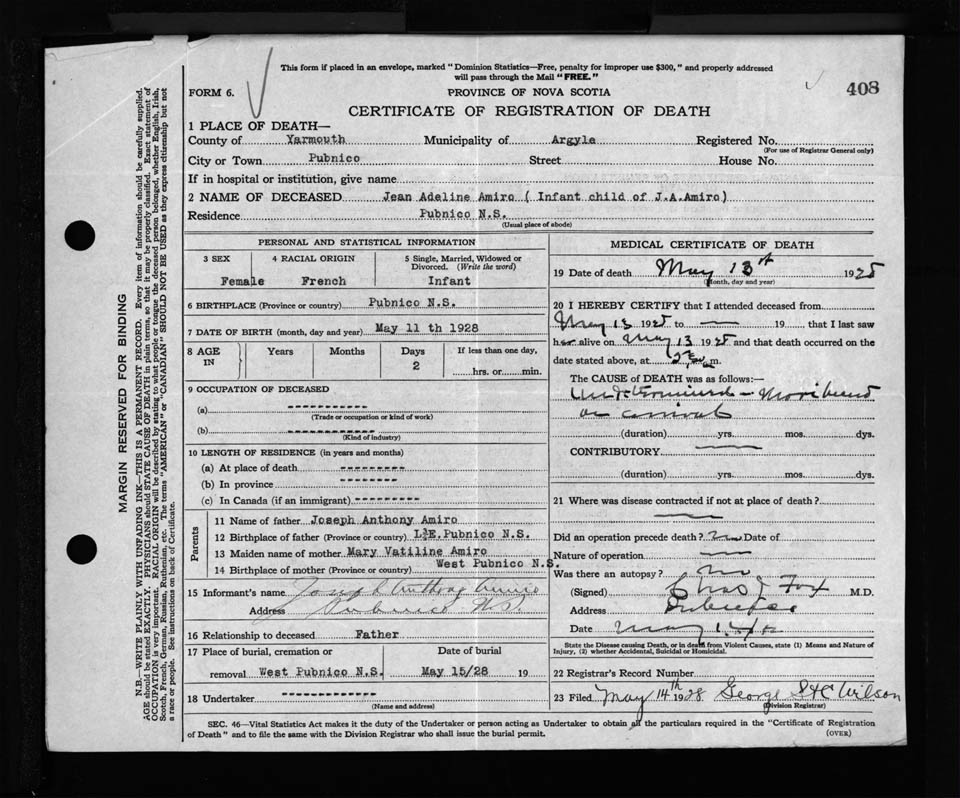 This form if placed in an envelope, marked "Dominion Statistics—Free, penalty for improper use $300," and properly addressed
will pass through the Mail "FREE."
408
FORM 6. PROVINCE OF NOVA SCOTIA
CERTIFICATE OF REGISTRATION OF DEATH
1 PLACE OF DEATH—
County of Yarmouth Municipality of Argyle Registered No.
(For use of Registrar General only)
City or Town Pubnico Street House No.
If in hospital or institution, give name
2 NAME OF DECEASED Jean Adeline Amiro ( Infant child of J.A.Amiro)
Residence Pubnico N.S.
(Usual place of abode)
PERSONAL AND STATISTICAL INFORMATION
3 SEX 4 RACIAL ORIGIN 5 Single, Married, Widowed or
Divorced. (Write the word)
Female French Infant
6 BIRTHPLACE (Province or country) Pubnico N.S.
7 DATE OF BIRTH (month, day and year) May 11 th 1928
8 AGE IN Years Months Days If less than one day,
2 hrs. or min.
9 OCCUPATION OF DECEASED
(a) ----------
(Trade or occupation or kind of work)
(b) -----------
(Kind of industry)
10 LENGTH OF RESIDENCE (in years and months)
(a) At place of death ---------
(b) In province ---------
(c) In Canada (if an immigrant) ----------
Parents
11 Name of father Joseph Anthony Amiro
12 Birthplace of father (Province or country) L.E.Pubnico N.S.
13 Maiden name of mother Mary Vatiline Amiro
14 Birthplace of mother (Province or country) West Pubnico N.S.
15 Informant's name Joseph Anthony Amiro
Address Pubnico N.S.
16 Relationship to deceased Father
17 Place of burial, cremation or Date of burial
removal West Pubnico N.S. May 15/28 19
18 Undertaker -----------
(Name and address)
MEDICAL CERTIFICATE OF DEATH
19 Date of death May 13th 1928
(Month, day and year)
20 I HEREBY CERTIFY that I attended deceased from
May 13 1928 to — 19 that I last saw
her alive on May 13 1928 and that death occurred on the
date stated above, at m.
The CAUSE OF DEATH was as follows:—
Undetermined – Moribund
on arrival
(duration) yrs. mos. dys.
CONTRIBUTORY
(duration) yrs. mos. dys.
21 Where was disease contracted if not at place of death?
Did an operation precede death? No Date of
Nature of operation
Was there an autopsy? No
(Signed) Chas J Fox M.D.
Address Pubnico
Date May
State the Disease causing Death, or in death from Violent Causes, state (1) Means and Nature of
Injury, (2) whether Accidental, Suicidal or Homicidal.
22 Registrar's Record Number
23 Filed May 14th 1928 George Wilson
(Division Registrar)
SEC. 46—Vital Statistics Act makes it the duty of the Undertaker or person acting as Undertaker to obtain all the particulars required in the "Certificate of Registration
of Death" and to file the same with the Division Registrar who shall issue the burial permit.
(OVER)
MARGIN RESERVED FOR BINDING
N.B.—WRITE PLAINLY WITH UNFADING INK—THIS IS A PERMANENT RECORD. Every item of information should be carefully supplied.
AGE should be stated EXACTLY. PHYSICIANS should STATE CAUSE OF DEATH in plain terms, so that it may be properly classified. Exact statement of
OCCUPATION is very important. RACIAL ORIGIN will be described by stating to what people or tongue the deceased person belonged, whether English, Irish,
Scotch, French, German, Russian, Ruthenian, etc. The terms "AMERICAN" or "CANADIAN" SHOULD NOT BE USED as they express citizenship but not
a race or people. See instructions on back of Certificate.